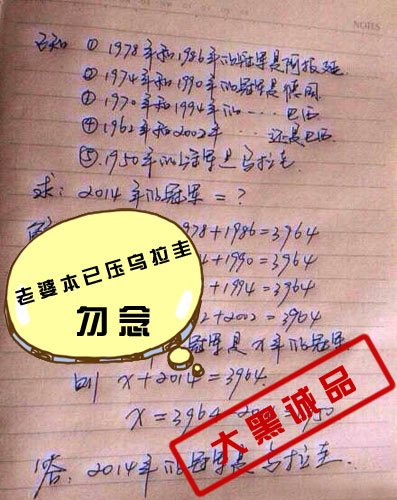 NOTES
已知 ① 1978年和1986年的冠军是阿根廷
② 1974年和1990年的冠军是德国
③ 1970年和1994年的……巴西
④ 1962年和2002年……还是巴西
⑤ 1950年的冠军是乌拉圭.
求: 2014年的冠军=?
978+1986=3964
+1990=3964
+1994=3964
2+2002=3964
老婆本已压乌拉圭
勿念
冠军是x年的冠军
则 x+2014=3964.
x=3964-20
大黑诚品
答: 2014年的冠军是乌拉圭.